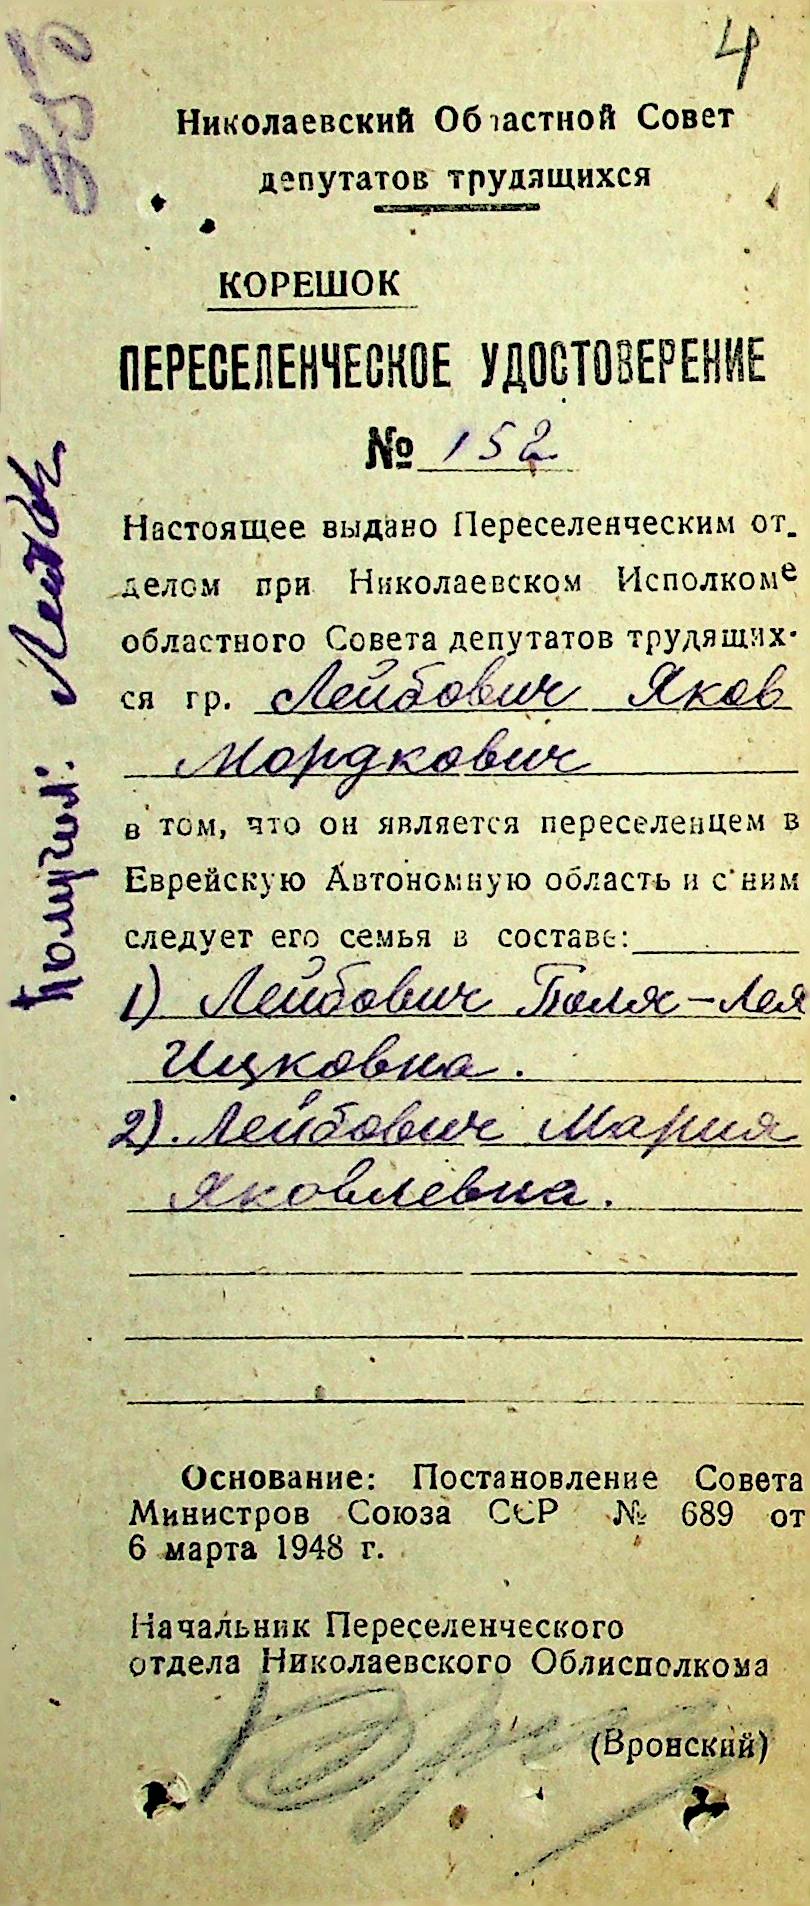 4
350
Николаевский Областной Совет
депутатов трудящихся
КОРЕШОК
ПЕРЕСЕЛЕНЧЕСКОЕ УДОСТОВЕРЕНИЕ
№ 152
Настоящее выдано Переселенческим от-
делом при Николаевском Исполкоме
областного Совета депутатов трудящих-
ся гр. Лейбович Яков
Мордкович
в том, что он является переселенцем в
Еврейскую Автономную область и с ним
следует его семья в составе:
1) Лейбович Поля-Лея
Ицковна.
2). Лейбович Мария
Яковлевна.
Основание: Постановление Совета
Министров Союза ССР № 689 от
6 марта 1948 г.
Начальник Переселенческого
отдела Николаевского Облисполкома
(Вронский)
Получил: